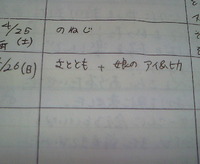 4/25
(土)
のねじ
/26(日)
さととも + 娘のアイ&ヒカ